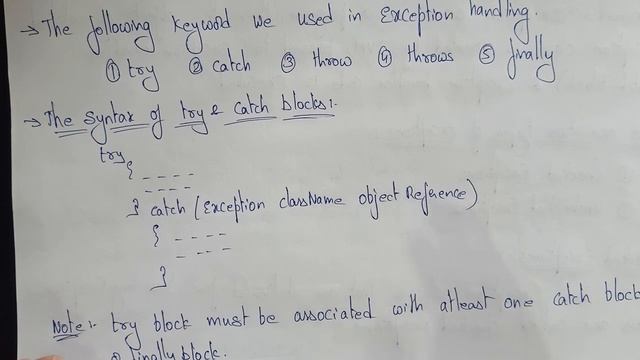 → The following keyword we used in Exception handling.
① try ② catch ③ throw ④ throws ⑤ finally
→ The Syntax of try & catch blocks:-
try
{ - - - -
- - - -
} catch (Exception className object Reference)
{ - - - -
- - - -
}
Note:- try block must be associated with atleast one catch block
finally block.